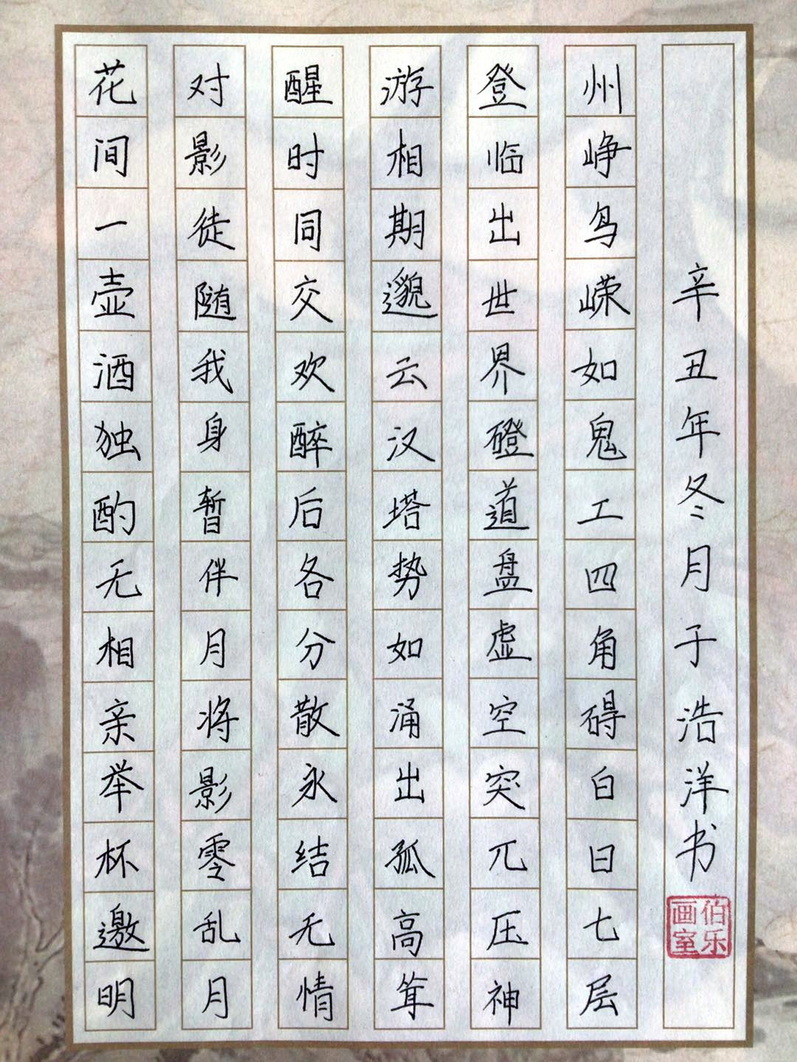 花间一壶酒独酌无相亲举杯邀明
对影徒随我身暂伴月将影零乱月
醒时同交欢醉后各分散永结无情
游相期邈云汉塔势如涌出孤高耸
登临出世界磴道盘虚空突兀压神
州峥鸟嵘如鬼工四角碍白日七层
辛丑年冬月于浩洋书
伯乐画室